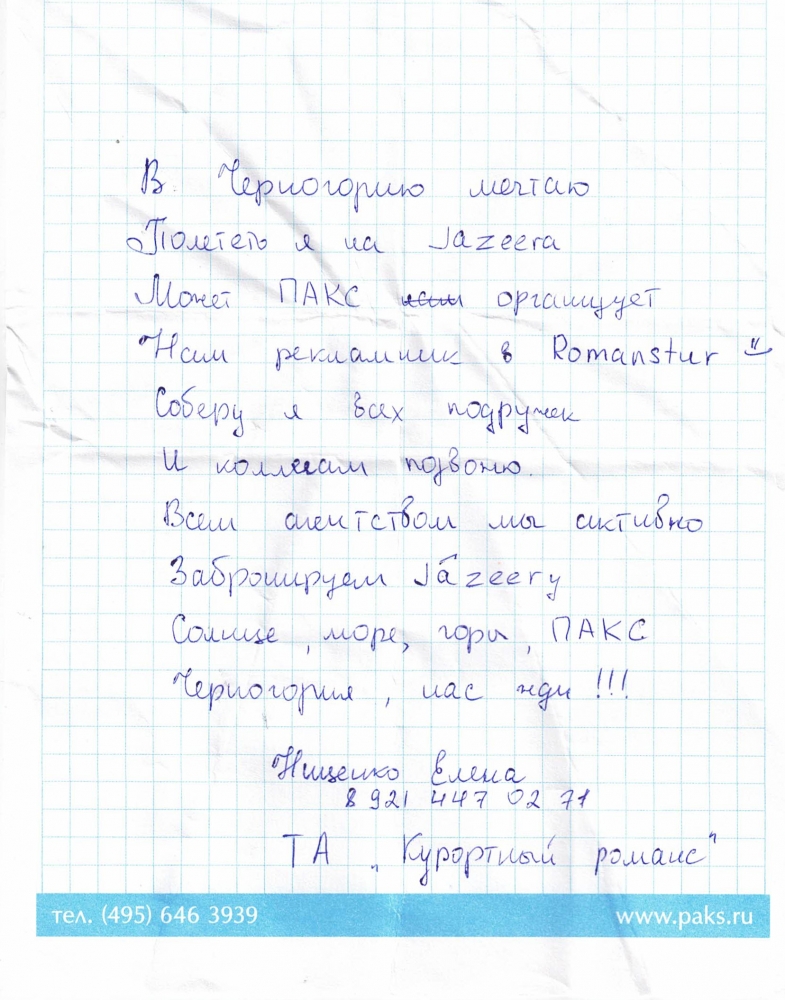 В Черногорию мечтаю
Полететь я на Jazeera
Может ПАКС организует
Нам рекламник в Romanstur
Соберу я всех подружек
И коллегам позвоню.
Всем агентством мы активно
Забронируем Jazeery
Солнце, море, горы, ПАКС
Черногория, нас жди!!!
Нищенко Елена
8 921 447 02 71
ТА "Курортный романс"
тел. (495) 646 3939 www.paks.ru